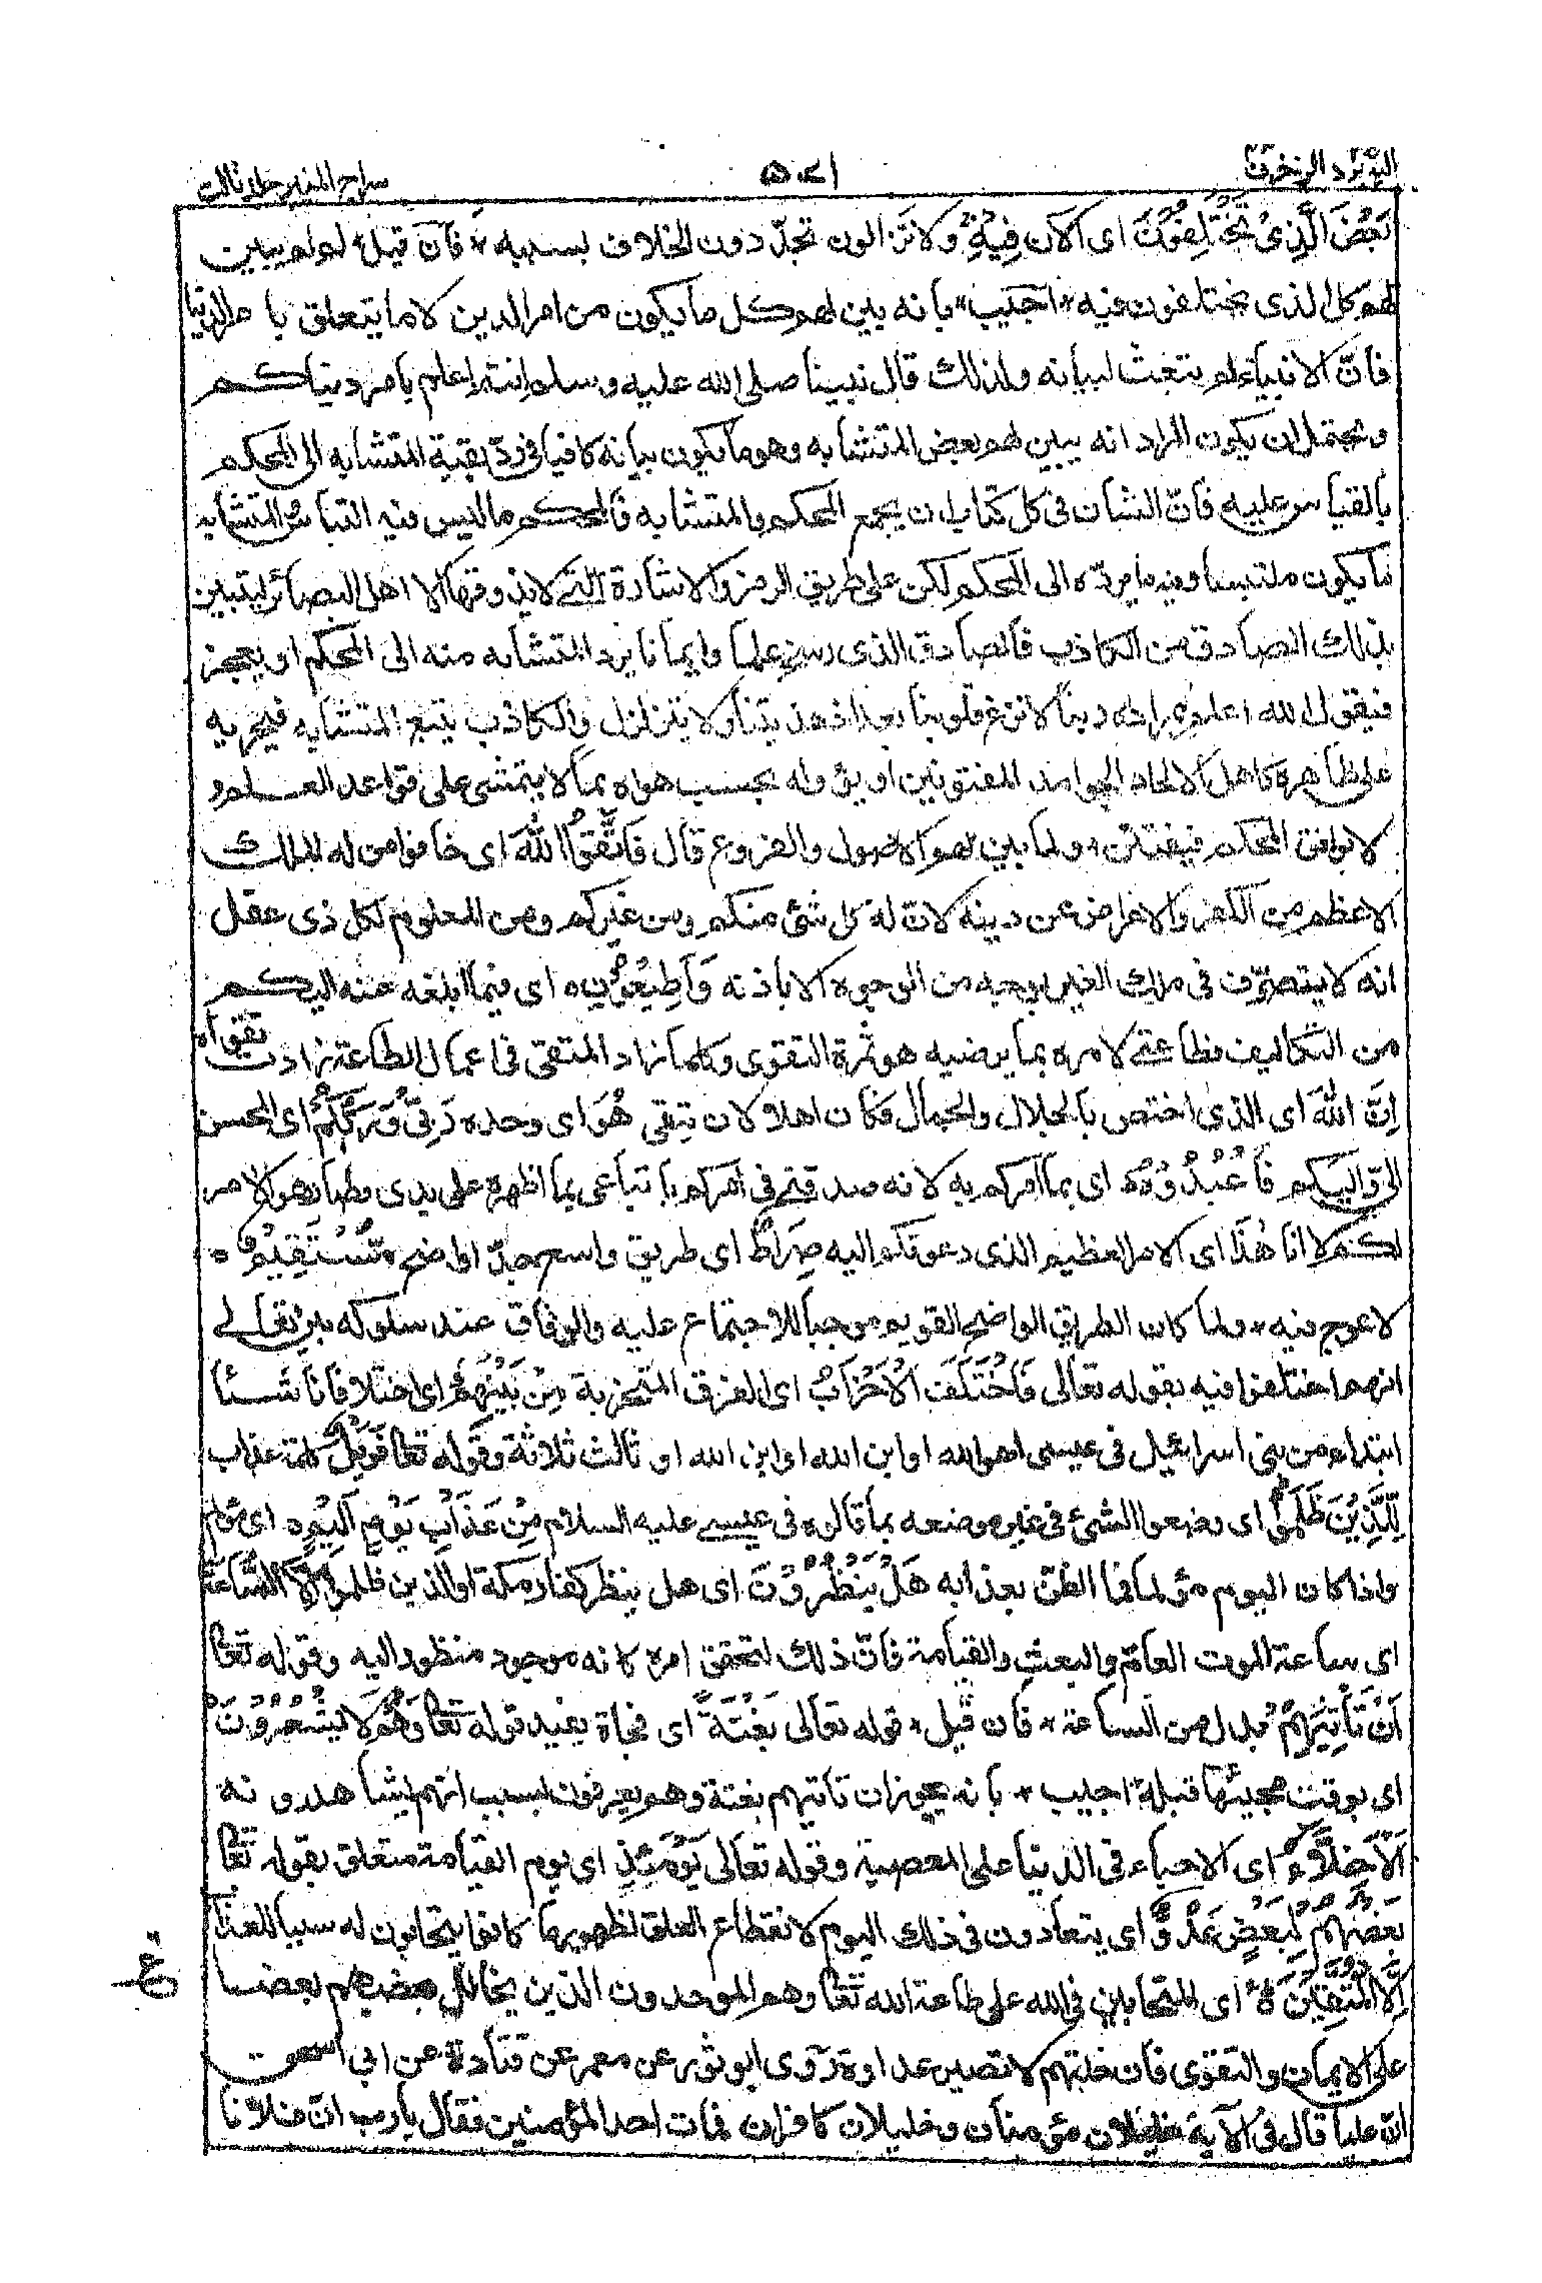 اليه يرد الزخرف
٥٧١
سراج المنير جلد ثالث
بَعْضَ الَّذِىْ تَخْتَلِفُوْنَ اى الآن فِيْهِ ولا تزالون تجدّدون الخلاف بسببه فان قيل لم لم يبين
لهم كل الذى يختلفون فيه اجيب بانه بين لهم كل ما يكون من امر الدين لا ما يتعلق بامر الدنيا
فانّ الانبياء لم تبعث لبيانه ولذلك قال نبينا صلى الله عليه وسلم انتم اعلم بامر دنياكم
ويحتمل ان يكون المراد انه يبين لهم بعض المتشابه وهو ما يكون بيانه كافيا فى ردّ بقية المتشابه الى المحكم
بالقياس عليه فانّ الشأن فى كل كتاب ان يجمع المحكم والمتشابه فالمحكم ما ليس فيه التباس والمتشابه
ما يكون ملتبسا وفيه ما يردّه الى المحكم لكن على طريق الرمز والاشارة التى لا يذوقها الا اهل البصائر ليتبين
بذلك الصادق من الكاذب فالصادق الذى رسخ علما وايمانا يرد المتشابه منه الى المحكم او يعجز
فيقول الله اعلم بمراده ربنا لا تزغ قلوبنا بعد اذ هديتنا ولا يتزلزل والكاذب يتبع المتشابه فيجريه
على ظاهره كاهل الالحاد الجوامد المفتونين او يؤوله بحسب هواه بما لا يتمشى على قواعد العلم و
لا يوافق المحكم فيفتتن ولما بين لهم الاصول والفروع قال فَاتَّقُوا اللّٰهَ اى خافوا من له الملك
الاعظم من الكفر والاعراض عن دينه لان له كل شئ منكم ومن غيركم ومن المعلوم لكل ذى عقل
انه لا يتصرّف فى ملك الغير بوجه من الوجوه الا باذنه وَاَطِيْعُوْنِ اى فيما ابلغه عنه اليكم
من التكاليف فطاعتى لامره بما يرضيه هو ثمرة التقوى وكلما زاد المتقى فى اعمال الطاعة زادت تقواه
اِنَّ اللّٰهَ اى الذى اختص بالجلال والجمال فكان اهلا لان يتقى هُوَ اى وحده رَبِّىْ وَرَبُّكُمْ اى المحسن
الىّ واليكم فَاعْبُدُوْهُ اى بما امركم به لانه صدقنى فى امركم باتباعى بما اظهره على يدى فصار هو الامر
لكم لا انا هٰذَا اى الامر العظيم الذى دعوتكم اليه صِرَاطٌ اى طريق واسع جدّا واضح مُّسْتَقِيْمٌ
لا عوج فيه ولما كان الطريق الواضح القويم موجبا للاجتماع عليه والوفاق عند سلوكه بين تعالى
انهم اختلفوا فيه بقوله تعالى فَاخْتَلَفَ الْاَحْزَابُ اى الفرق المتحزبة مِنْ بَيْنِهِمْ اى اختلافا ناشئا
ابتداء من بنى اسرائيل فى عيسى اهو الله او ابن الله او ثالث ثلاثة وقوله تعا فَوَيْلٌ كلمة عذاب
لِّلَّذِيْنَ ظَلَمُوْا اى وضعوا الشئ فى غير موضعه بما قالوه فى عيسى عليه السلام مِنْ عَذَابِ يَوْمٍ اَلِيْمٍ اى مؤلم
واذا كان اليوم مؤلما فما الظنّ بعذابه هَلْ يَنْظُرُوْنَ اى هل ينظر كفار مكة او الذين ظلموا اِلَّا السَّاعَةَ
اى ساعة الموت العامّ والبعث والقيامة فانّ ذلك لتحقق امره كانه موجود منظور اليه وقوله تعا
اَنْ تَأْتِيَهُمْ بدل من الساعة فان قيل قوله تعالى بَغْتَةً اى فجاة يفيد قوله تعا وَهُمْ لَا يَشْعُرُوْنَ
اى بوقت مجيئها قبله اجيب بانه يجوز ان تاتيهم بغتة وهم يعرفون بسبب انهم يشاهدونه
اَلْاَخِلَّآءُ اى الاحباء فى الدنيا على المعصية وقوله تعالى يَوْمَئِذٍ اى يوم القيامة متعلق بقوله تعا
بَعْضُهُمْ لِبَعْضٍ عَدُوٌّ اى يتعادون فى ذلك اليوم لانقطاع العلق لظهور ما كانوا يتحابون له سببا للعذاب
اِلَّا الْمُتَّقِيْنَ اى المتحابين فى الله على طاعة الله تعا وهم الموحدون الذين يخالل بعضهم بعضا
على الايمان والتقوى فان خلتهم لا تصير عداوة روى ابو ثور عن معمر عن قتادة عن ابى اسحق
انّ عليا قال فى الآية خليلان مؤمنان وخليلان كافران فمات احد المؤمنين فقال يا رب انّ فلانا
ع